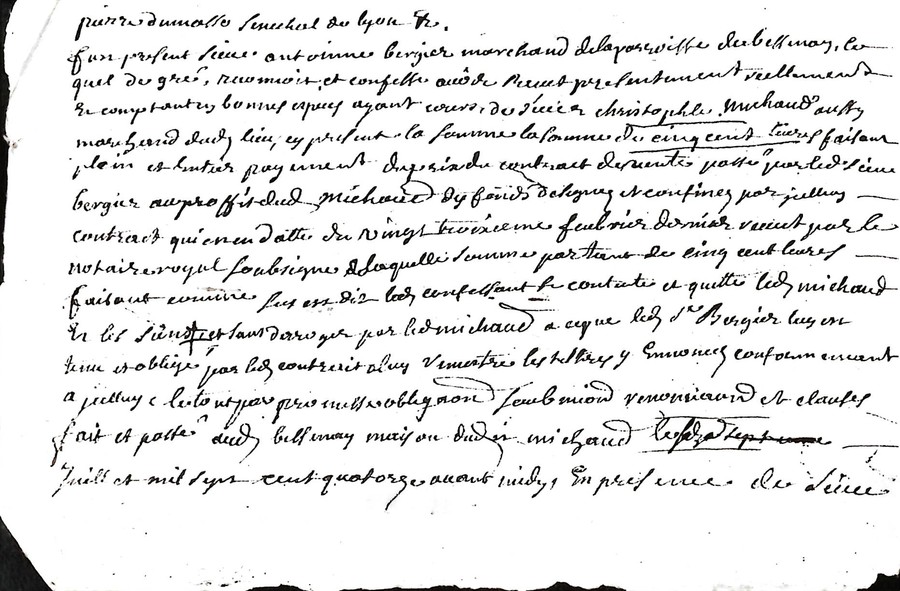 pierre dumasso senechal de lyon &.
fut present sieur antoinne bergier marchand de la parroisse de bessenay, le
quel de gré, reconnoit et confesse avoir receut presentement reellement
et comptant en bonnes especes ayant cours, de sieur christophle michaud aussy
marchand dud lieu, cy present la somme la somme de cinq cent livres faisant
plein et entier payement du prix du contract de vente passé par led sieur
bergier au proffit dud michaud des fonds designes et confinez par icelluy
contract qui en en datte du vingt troisieme feubrier dernier receut par le
notaire royal soubsigne de laquelle somme partant de cinq cent livres
faisant comme sus est dit led confessant se contente et quitte led michaud
et les siens et sans derroger par led michaud a ce que led sr Bergier luy est
tenu et obligé par led contrait a luy remettre les tiltres y ennoncez conformement
a icelluy le tout par promesse obligaon soubmiond renonciaond et clauses
fait et passé aud bessenay maison dud sr michaud le
juillet mil sept cent quatorze avant midy, En presence de sieur